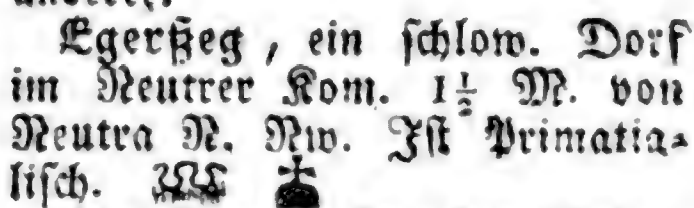 Egerßeg, ein schlow. Dorf
im Neutrer Kom. 1½ M. von
Neutra N. Nw. Ist Primatia-
lisch.